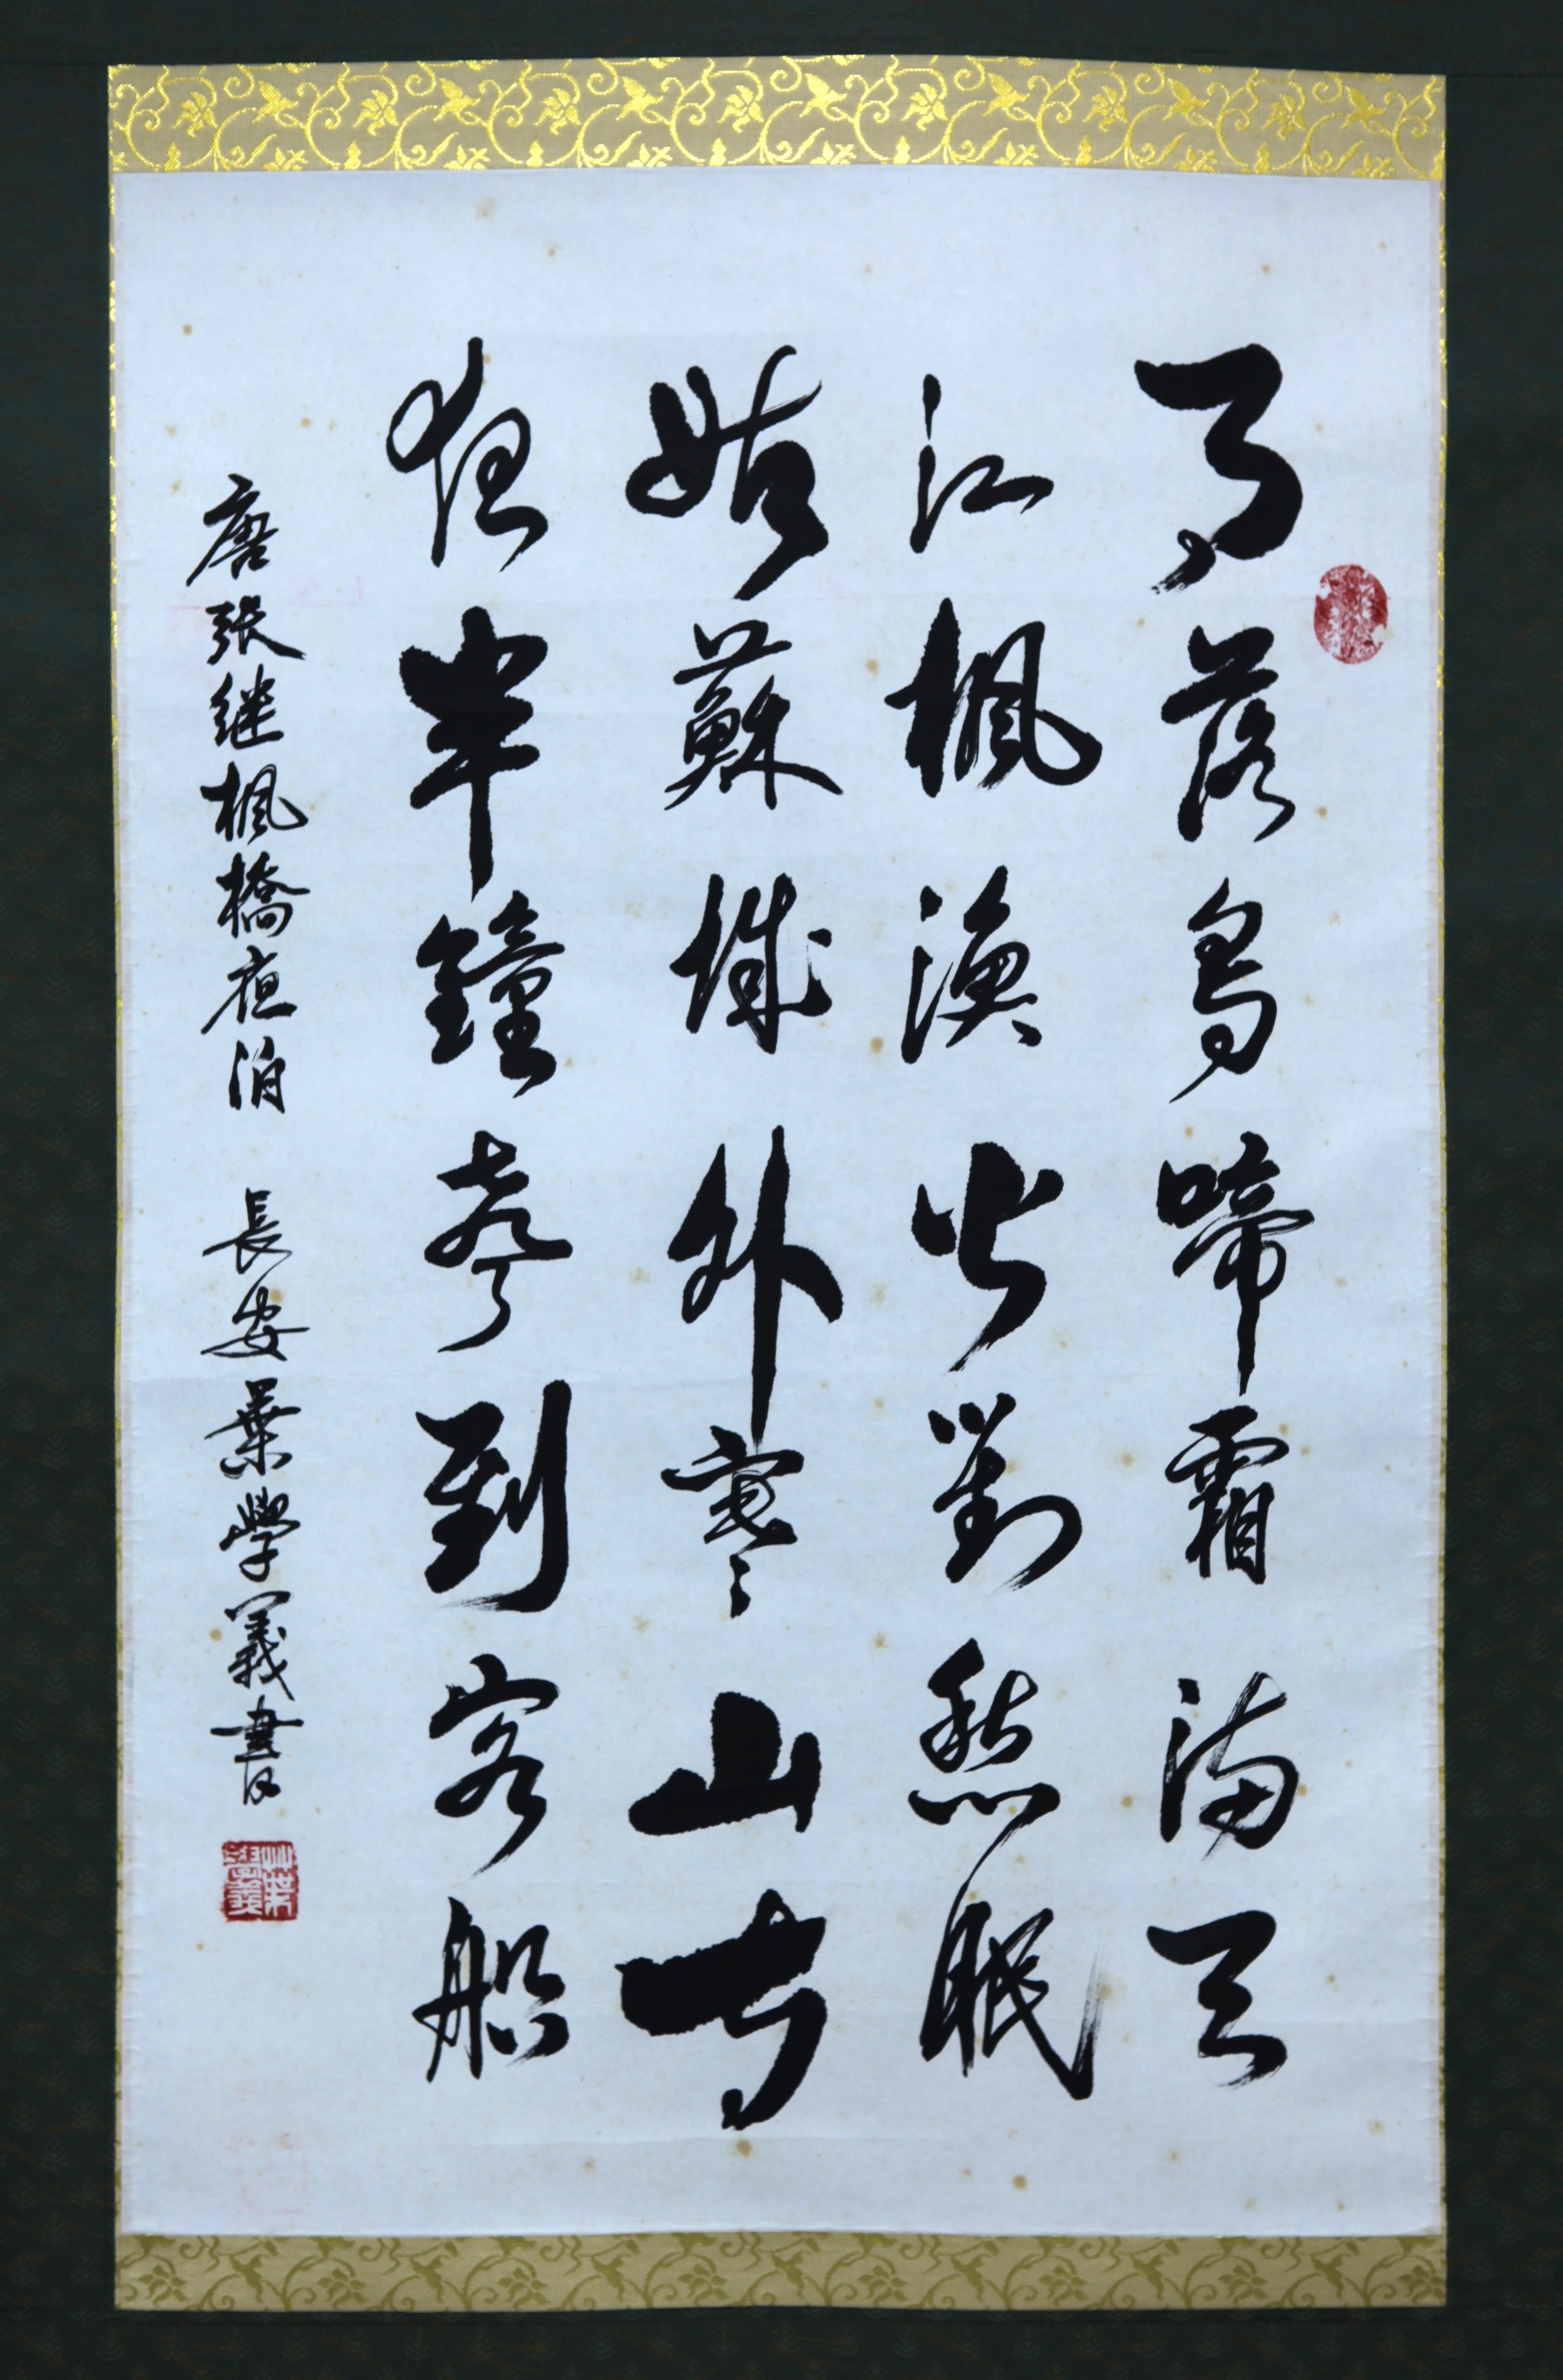 月落烏啼霜満天
江楓漁火對愁眠
姑蘇城外寒山寺
夜半鐘聲到客船
唐張继楓橋夜泊 長安葉學義書
葉學義